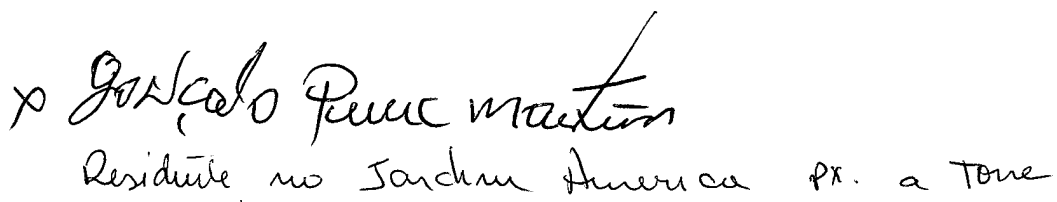 x Gonçalo Martins
Residente no Jardim America px. a Torre